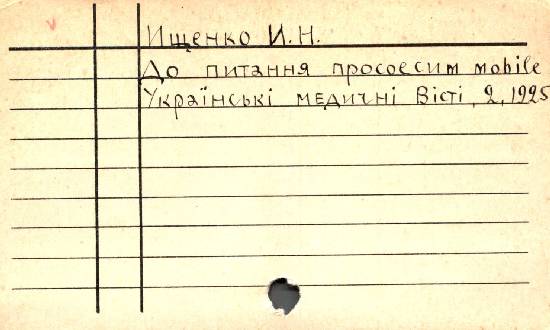 Ищенко И.Н.
До питання просоесит mobile
Українські медичні Вісті, 2, 1925